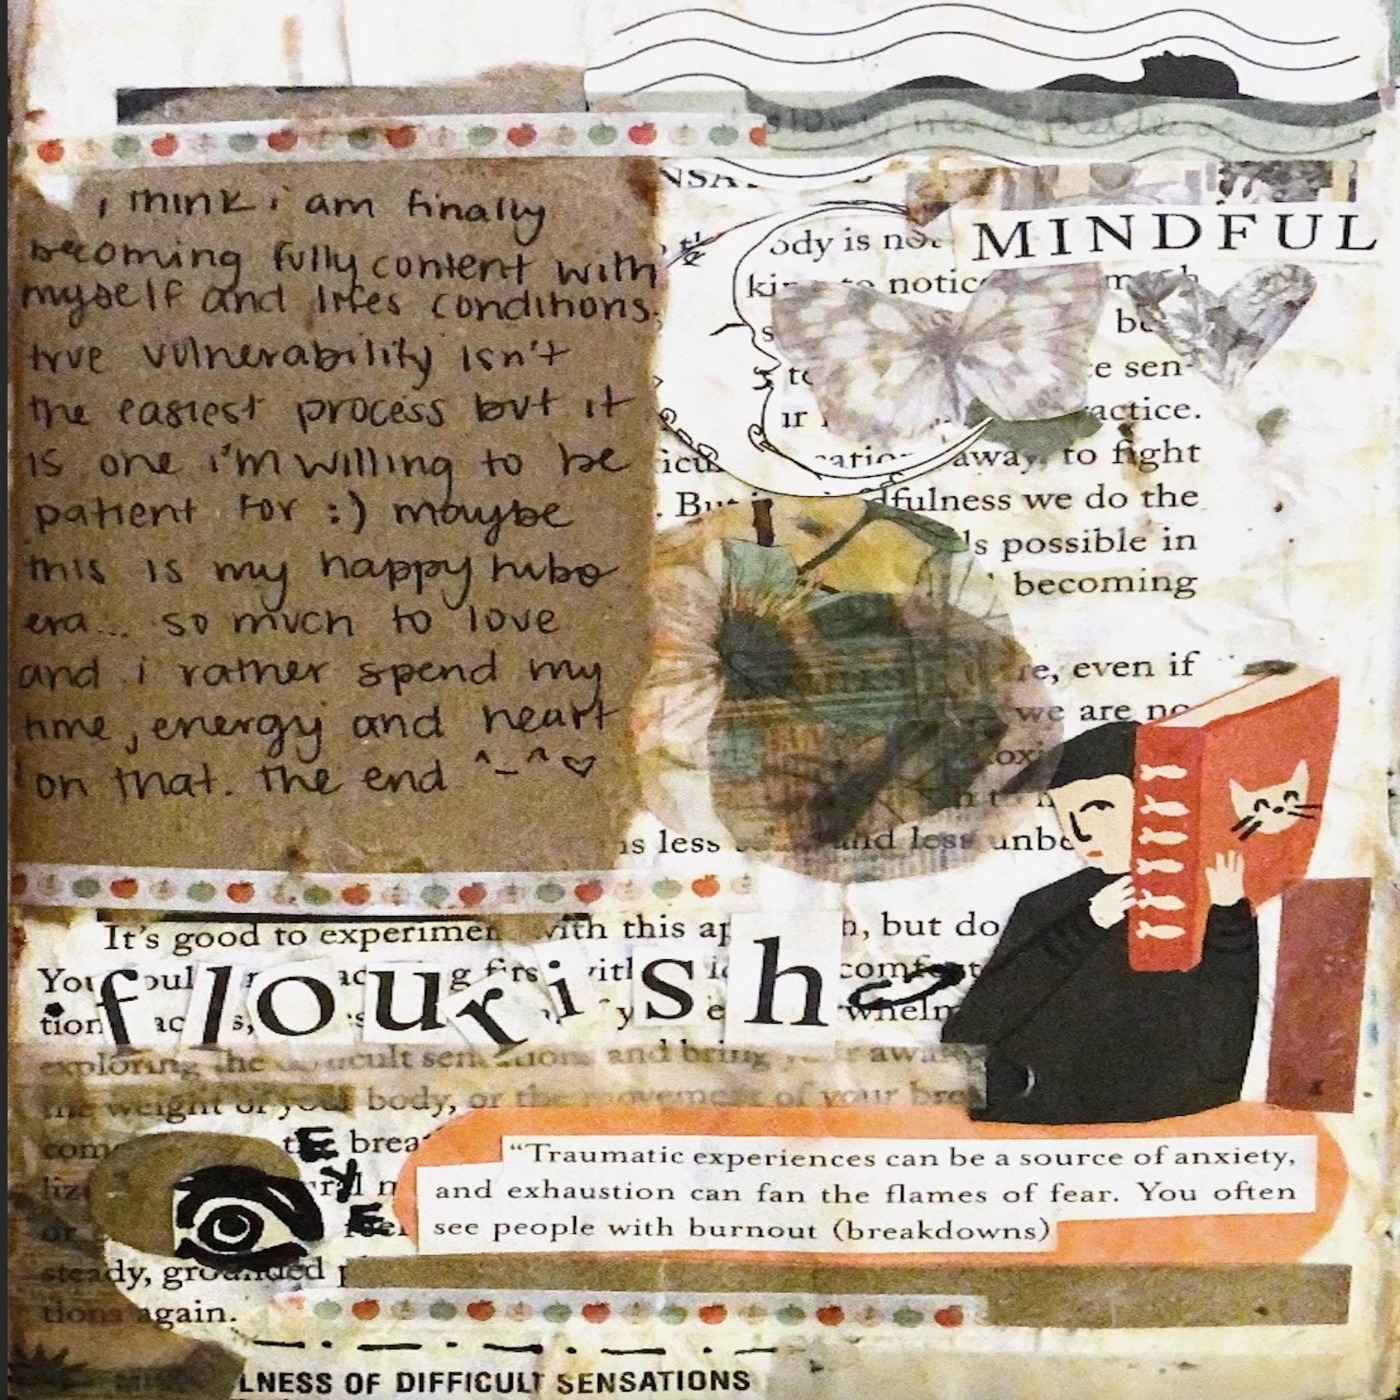 i think i am finally
becoming fully content with
myself and lifes conditions.
true vulnerability isn't
the easiest process but it
is one i'm willing to be
patient for :) maybe
this is my happy hobo
era... so much to love
and i rather spend my
time, energy and heart
on that. the end ^-^♡
MINDFUL
ody is not
notic
sen-
actice.
away, to fight
fulness we do the
ls possible in
becoming
re, even if
we are no
is less
and less unbe
It's good to experimen with this ap h, but do
You
flourish
tion
exploring the icult sensations and bring awa
the weight of your body, or the movement of your bre
com the brea
EYE
or
steady, grounded p
tions again.
"Traumatic experiences can be a source of anxiety,
and exhaustion can fan the flames of fear. You often
see people with burnout (breakdowns)
LNESS OF DIFFICULT SENSATIONS